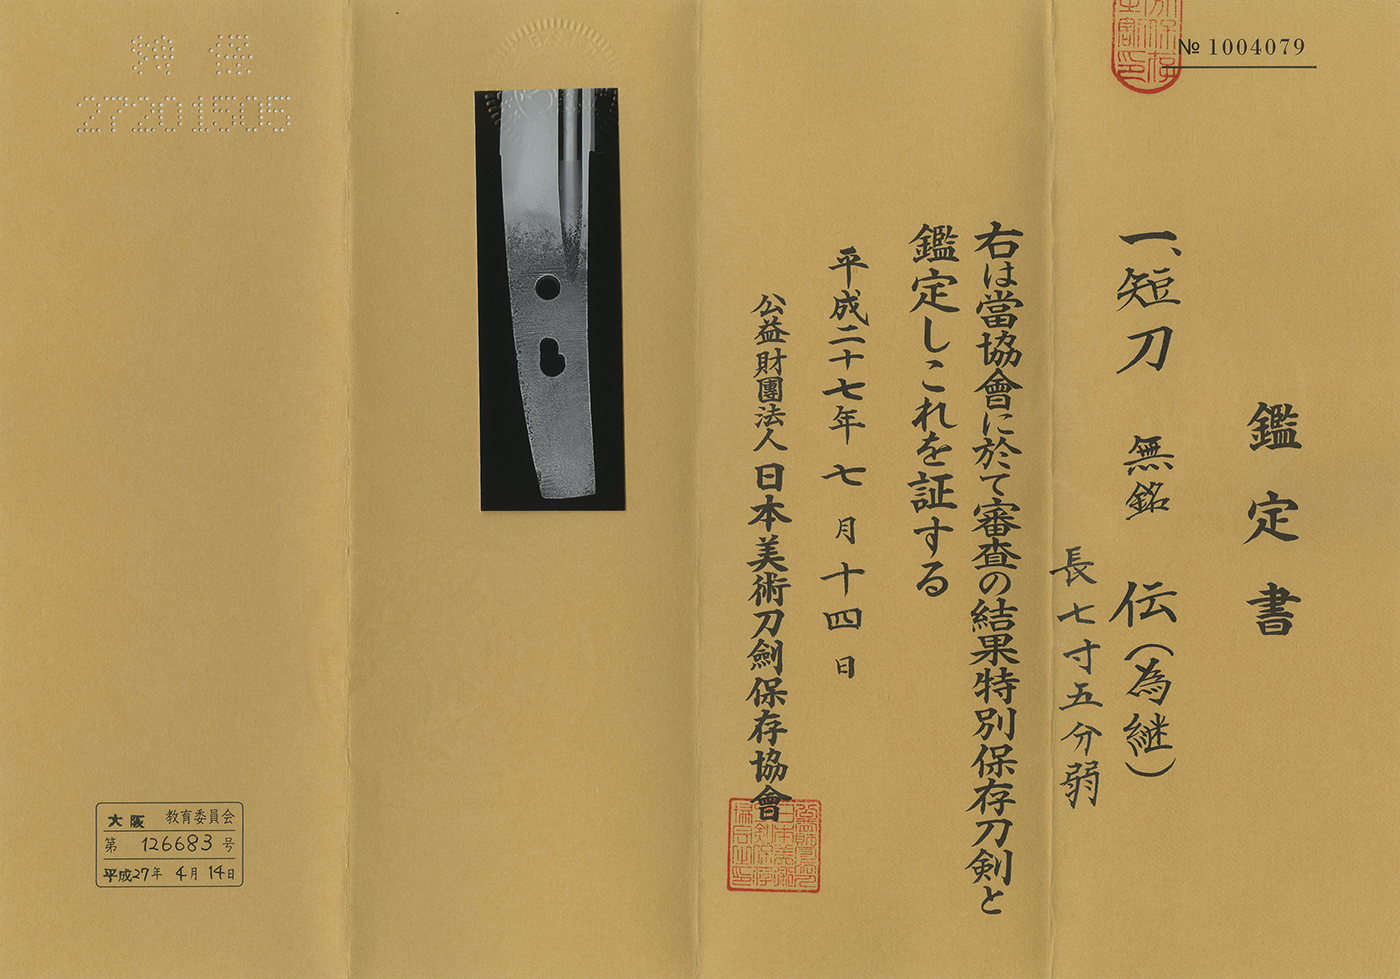 № 1004079
鑑定書
一、短刀 無銘 伝(為継)
長七寸五分弱
右は當協會に於て審査の結果特別保存刀剣と
鑑定しこれを証する
平成二十七年七月十四日
公益財團法人日本美術刀劍保存協會
特保
27201505
大阪 教育委員会
第 126683 号
平成27年 4月 14日